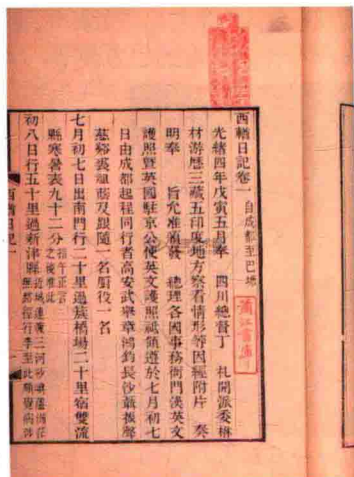 西輶日記卷一 自成都至巴塘
光緒四年戊寅五月奉　四川總督丁　札開派委楙
材游歷三藏五印度地方察看情形等因經附片　奏
明奉　旨允准頒發　總理各國事務衙門漢英文
護照暨英國駐京公使英文護照祗領遵於七月初七
日由成都起程同行者高安武舉章鴻鈞長沙蕭拔
慈谿裘祖蔭及跟隨一名廚役一名
七月初七日出南門行二十里過簇橋場二十里宿雙流
縣寒暑表九十二分 指午正言之後准此
初八日行五十里過新津縣
蒲江書庫
西輶日記一